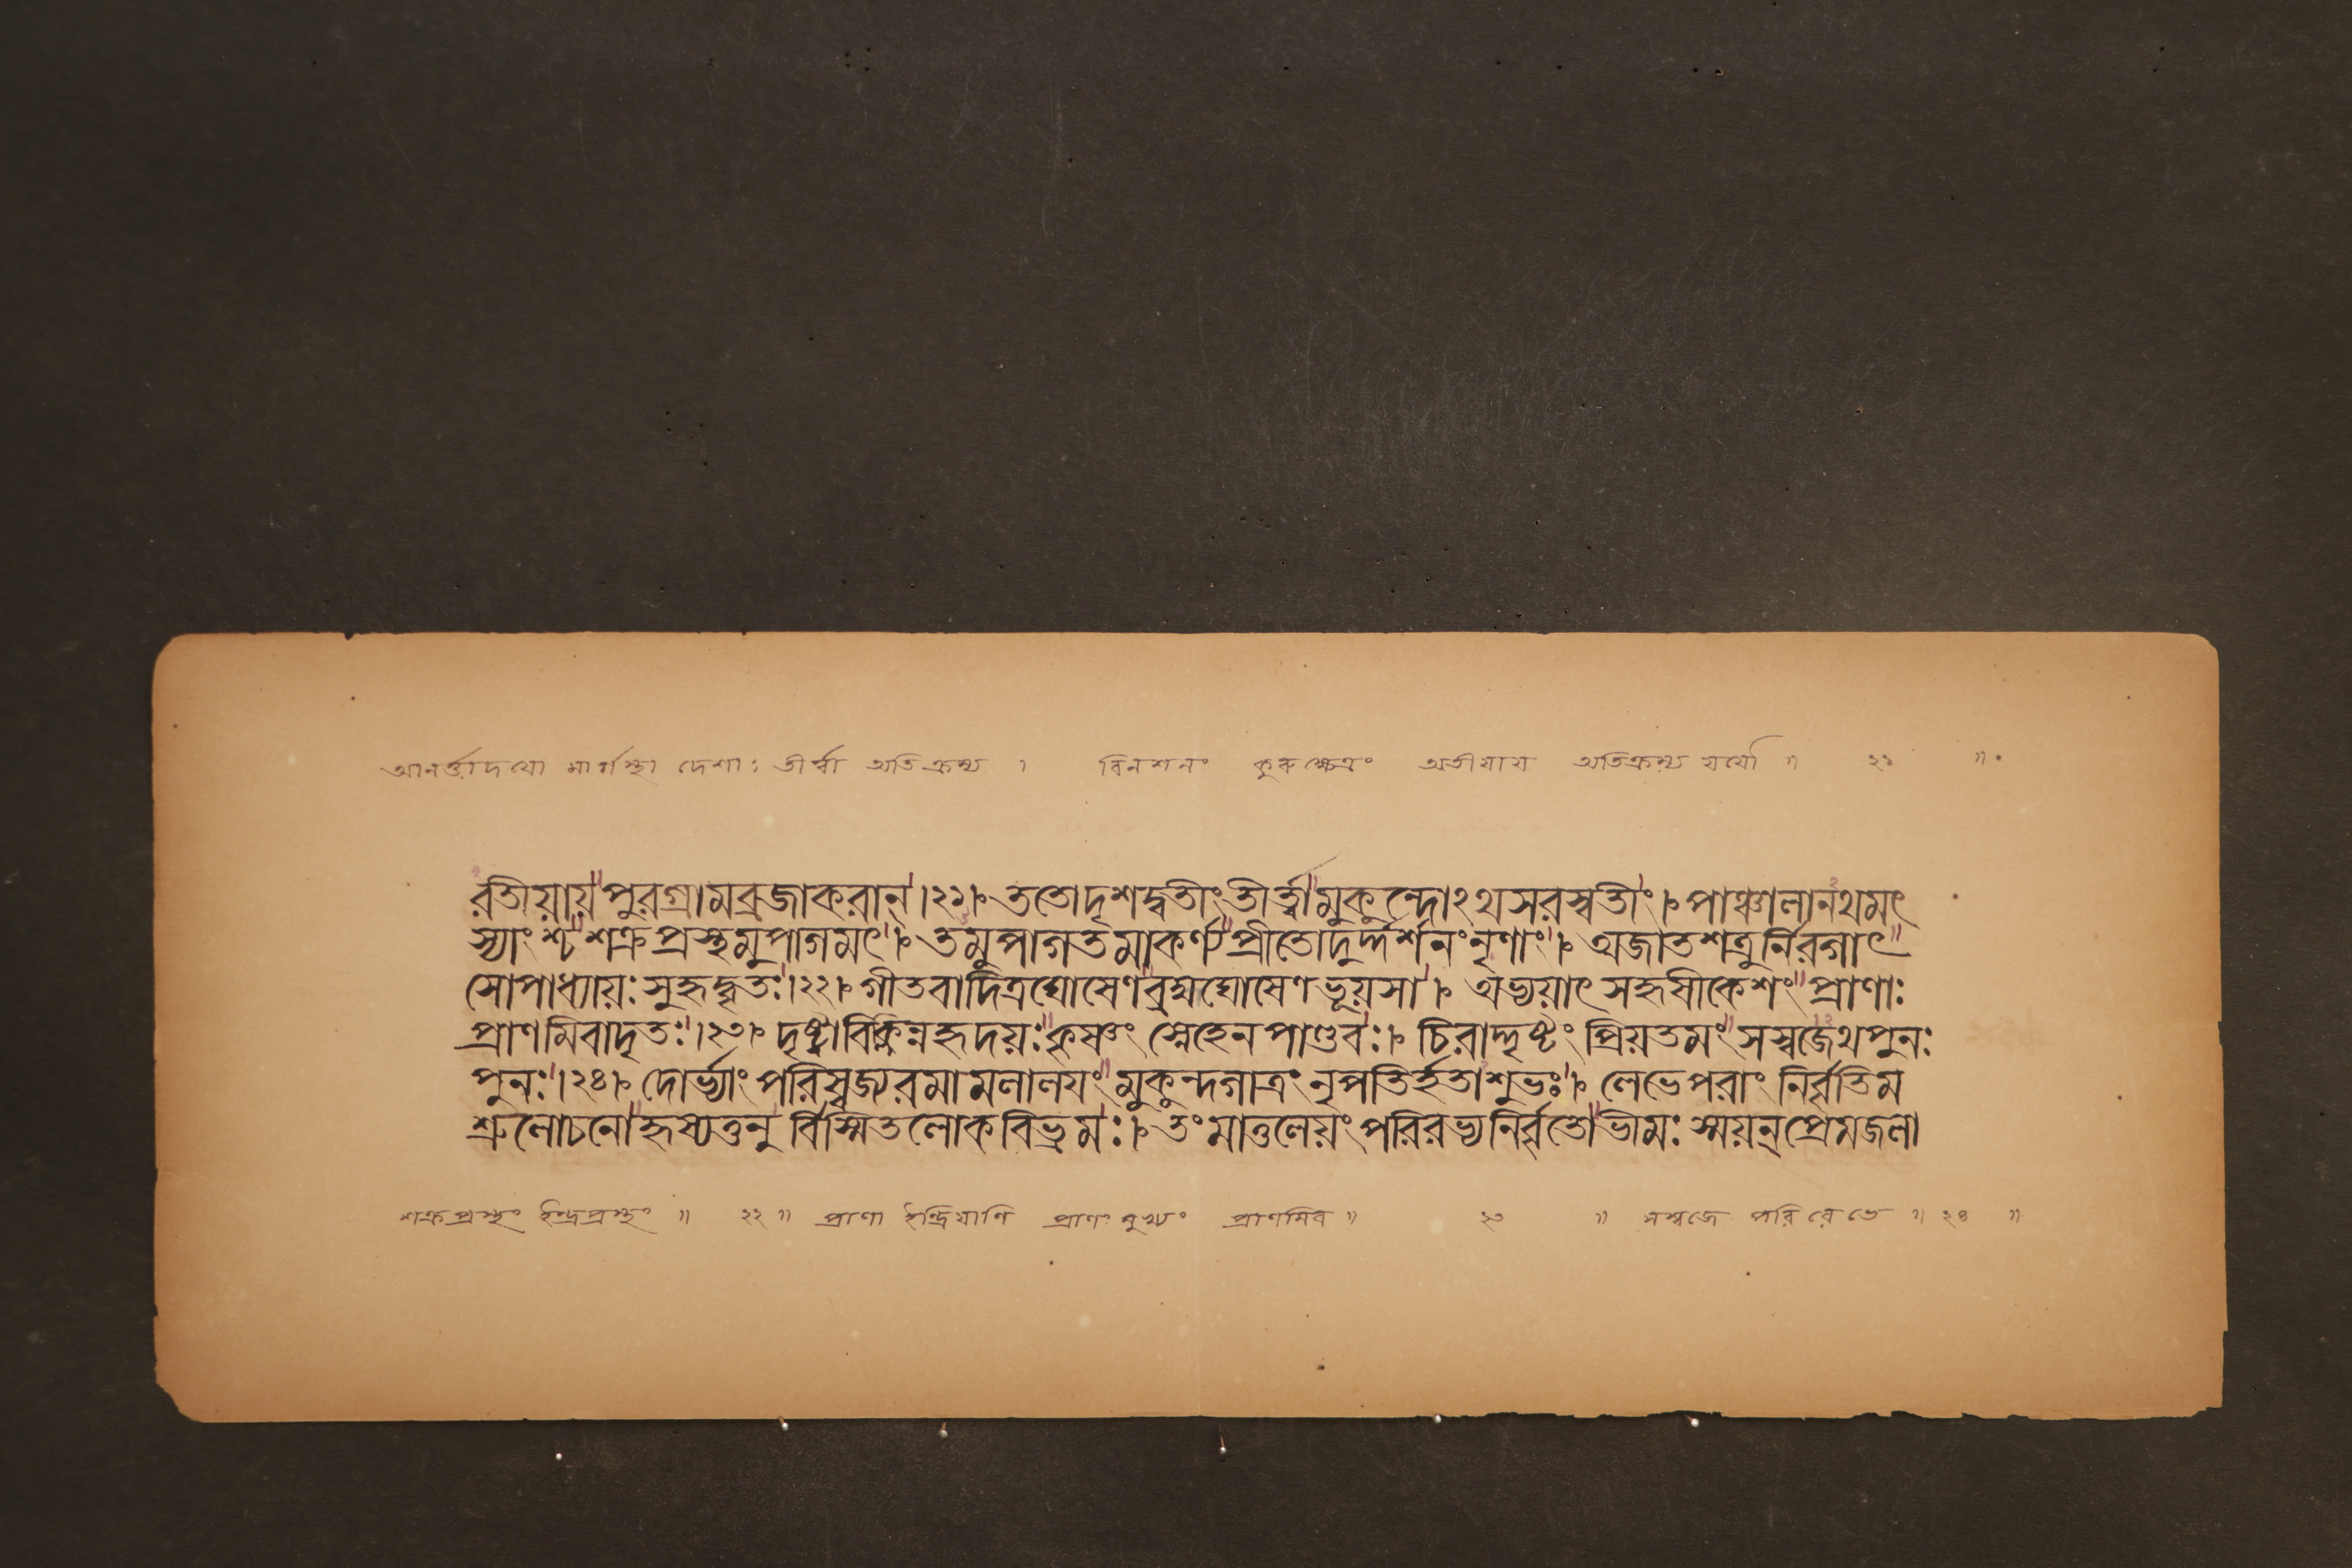 আনর্ত্তাদযো মার্গস্থা দেশাঃ তীর্ত্বা অতিক্রম্য । বিনশনং কুরুক্ষেত্রং অতীযায অতিক্রম্য যযৌ ॥ ২১ ॥
রতীয়ায়পুরগ্রামব্রজাকরান্।২১। ততোদৃশদ্বতীংতীর্ত্ত্বামুকুন্দোঽথসরস্বতীং। পাঞ্চালানথমৎ
স্যাংশ্চশক্রপ্রস্থমুপাগমৎ। তমুপাগতমাকর্ণ্যপ্রীতোদুর্দ্দর্শনংনৃণাং। অজাতশত্রুর্নিরগাৎ
সোপাধ্যায়ঃসুহৃদ্বৃতঃ।২২। গীতবাদিত্রঘোষেণব্রহ্মঘোষেণভূয়সা। অভ্যয়াৎসহৃষীকেশংপ্রাণাঃ
প্রাণমিবাদৃতঃ।২৩। দৃষ্ট্বাবিক্লিন্নহৃদয়ঃকৃষ্ণং স্নেহেনপাণ্ডবঃ। চিরাদ্দৃষ্টং প্রিয়তমংসস্বজেথপুনঃ
পুনঃ।২৪। দোর্ভ্যাং পরিস্বজ্যরমামলালয়ং মুকুন্দগাত্রং নৃপতির্হতাশুভঃ। লেভেপরাং নির্বৃতিম
শ্রুলোচনোহৃষ্যত্তনুর্বিস্মিতলোকবিভ্রমঃ। তংমাতুলেয়ংপরিরভ্যনির্বৃতোভীমঃ স্ময়ন্প্রেমজলা
শক্রপ্রস্থং ইন্দ্রপ্রস্থং ॥ ২২ ॥ প্রাণা ইন্দ্রিযাণি প্রাণং মুখ্যং প্রাণমিব ॥ ২৩ ॥ সস্বজে পরিরেভে ॥ ২৪ ॥